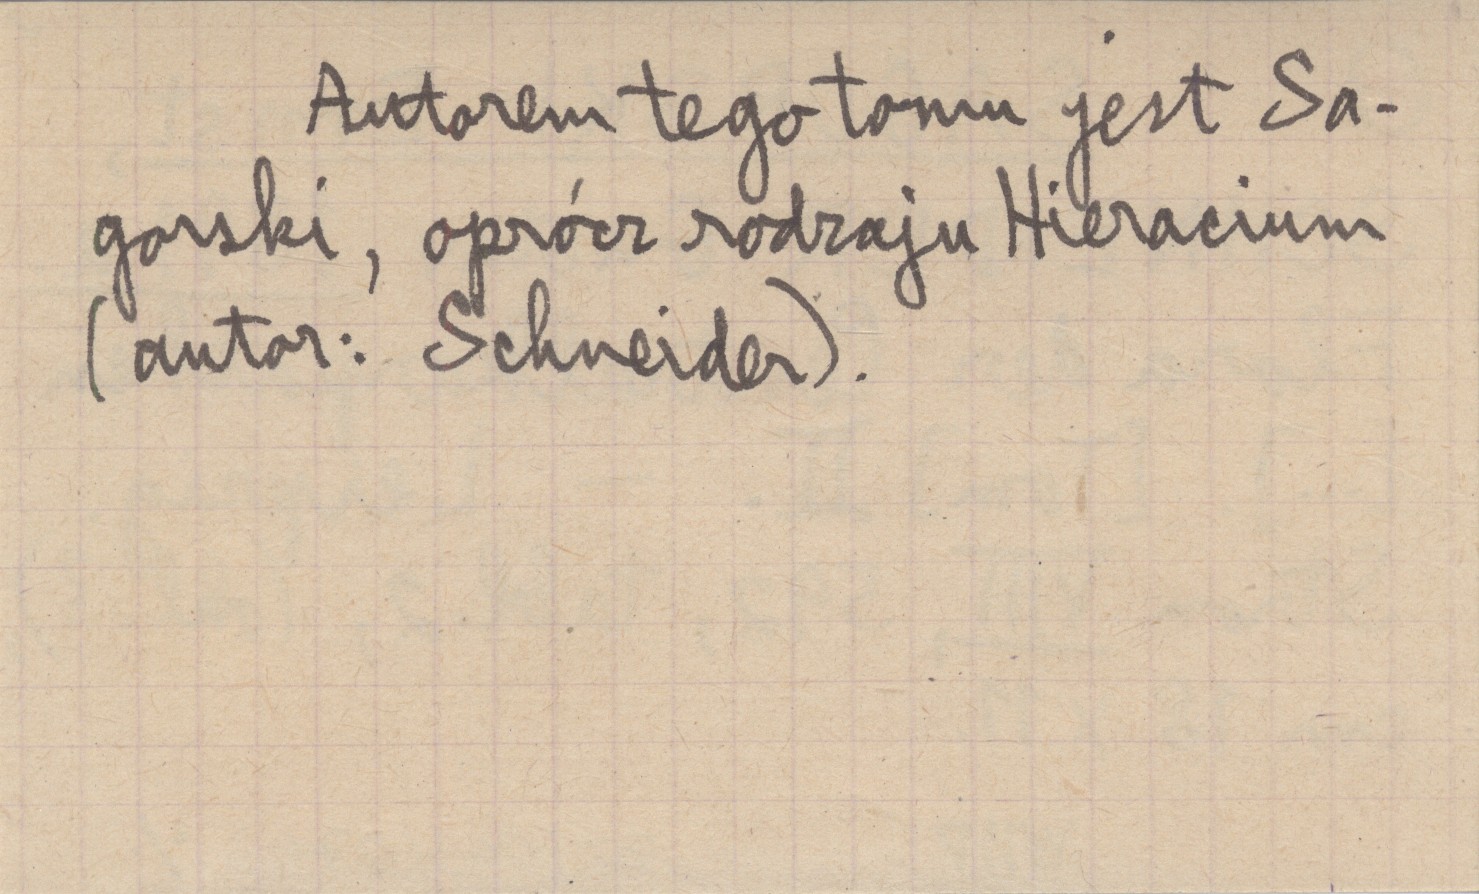 Autorem tego tomu jest Sa-
gorski, oprócz rodzaju Hieracium
(autor: Schneider).